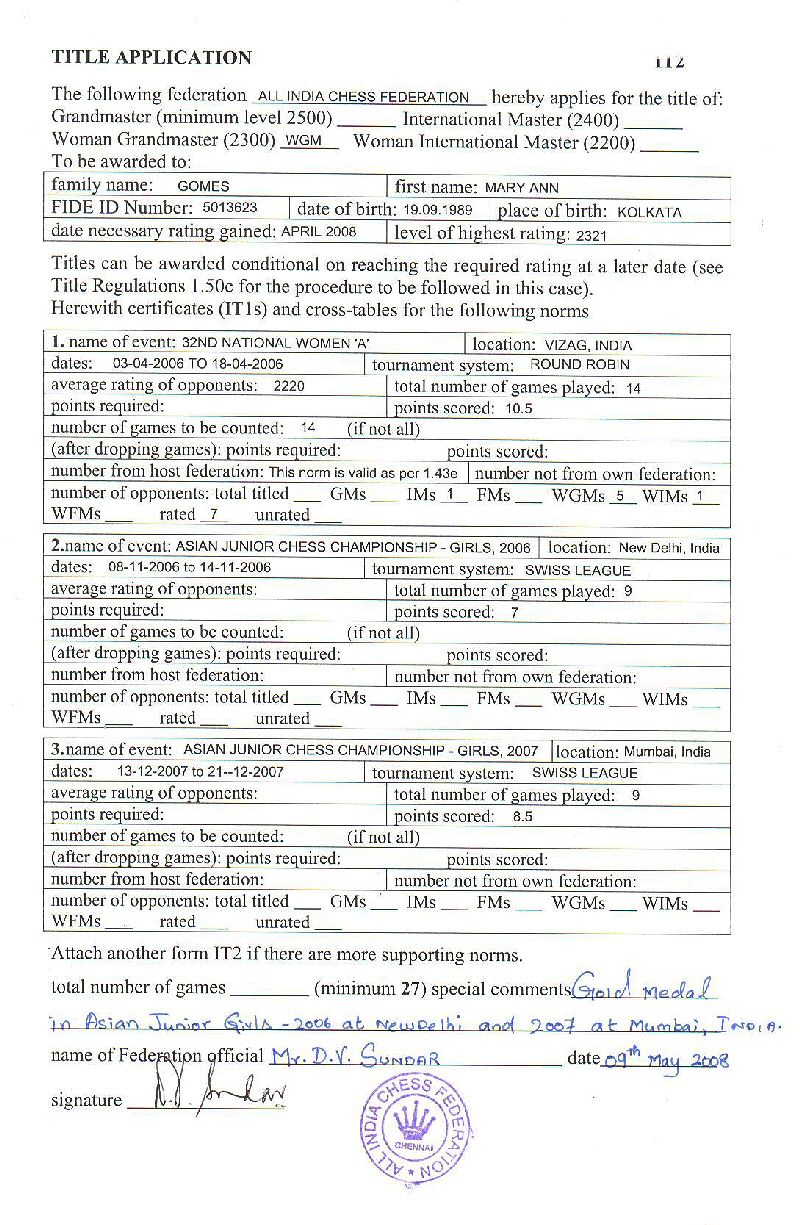 TITLE APPLICATION IT2
The following federation ALL INDIA CHESS FEDERATION hereby applies for the title of:
Grandmaster (minimum level 2500) ______ International Master (2400) ______
Woman Grandmaster (2300) WGM Woman International Master (2200) ______
To be awarded to:
family name: GOMES first name: MARY ANN
FIDE ID Number: 5013623 date of birth: 19.09.1989 place of birth: KOLKATA
date necessary rating gained: APRIL 2008 level of highest rating: 2321
Titles can be awarded conditional on reaching the required rating at a later date (see
Title Regulations 1.50c for the procedure to be followed in this case).
Herewith certificates (IT1s) and cross-tables for the following norms
1. name of event: 32ND NATIONAL WOMEN 'A' location: VIZAG, INDIA
dates: 03-04-2006 TO 18-04-2006 tournament system: ROUND ROBIN
average rating of opponents: 2220 total number of games played: 14
points required: points scored: 10.5
number of games to be counted: 14 (if not all)
(after dropping games): points required: points scored:
number from host federation: This norm is valid as per 1.43e number not from own federation:
number of opponents: total titled ___ GMs ___ IMs 1 FMs ___ WGMs 5 WIMs 1
WFMs ___ rated 7 unrated ___
2.name of event: ASIAN JUNIOR CHESS CHAMPIONSHIP - GIRLS, 2006 location: New Delhi, India
dates: 08-11-2006 to 14-11-2006 tournament system: SWISS LEAGUE
average rating of opponents: total number of games played: 9
points required: points scored: 7
number of games to be counted: (if not all)
(after dropping games): points required: points scored:
number from host federation: number not from own federation:
number of opponents: total titled ___ GMs ___ IMs ___ FMs ___ WGMs ___ WIMs ___
WFMs ___ rated ___ unrated ___
3.name of event: ASIAN JUNIOR CHESS CHAMPIONSHIP - GIRLS, 2007 location: Mumbai, India
dates: 13-12-2007 to 21--12-2007 tournament system: SWISS LEAGUE
average rating of opponents: total number of games played: 9
points required: points scored: 8.5
number of games to be counted: (if not all)
(after dropping games): points required: points scored:
number from host federation: number not from own federation:
number of opponents: total titled ___ GMs ___ IMs ___ FMs ___ WGMs ___ WIMs ___
WFMs ___ rated ___ unrated ___
Attach another form IT2 if there are more supporting norms.
total number of games ________ (minimum 27) special comments Gold Medal
in Asian Junior Girls - 2006 at New Delhi and 2007 at Mumbai, INDIA.
name of Federation official Mr. D.V. SUNDAR date 09th May 2008
signature D.V. Sundar
ALL INDIA CHESS FEDERATION
CHENNAI